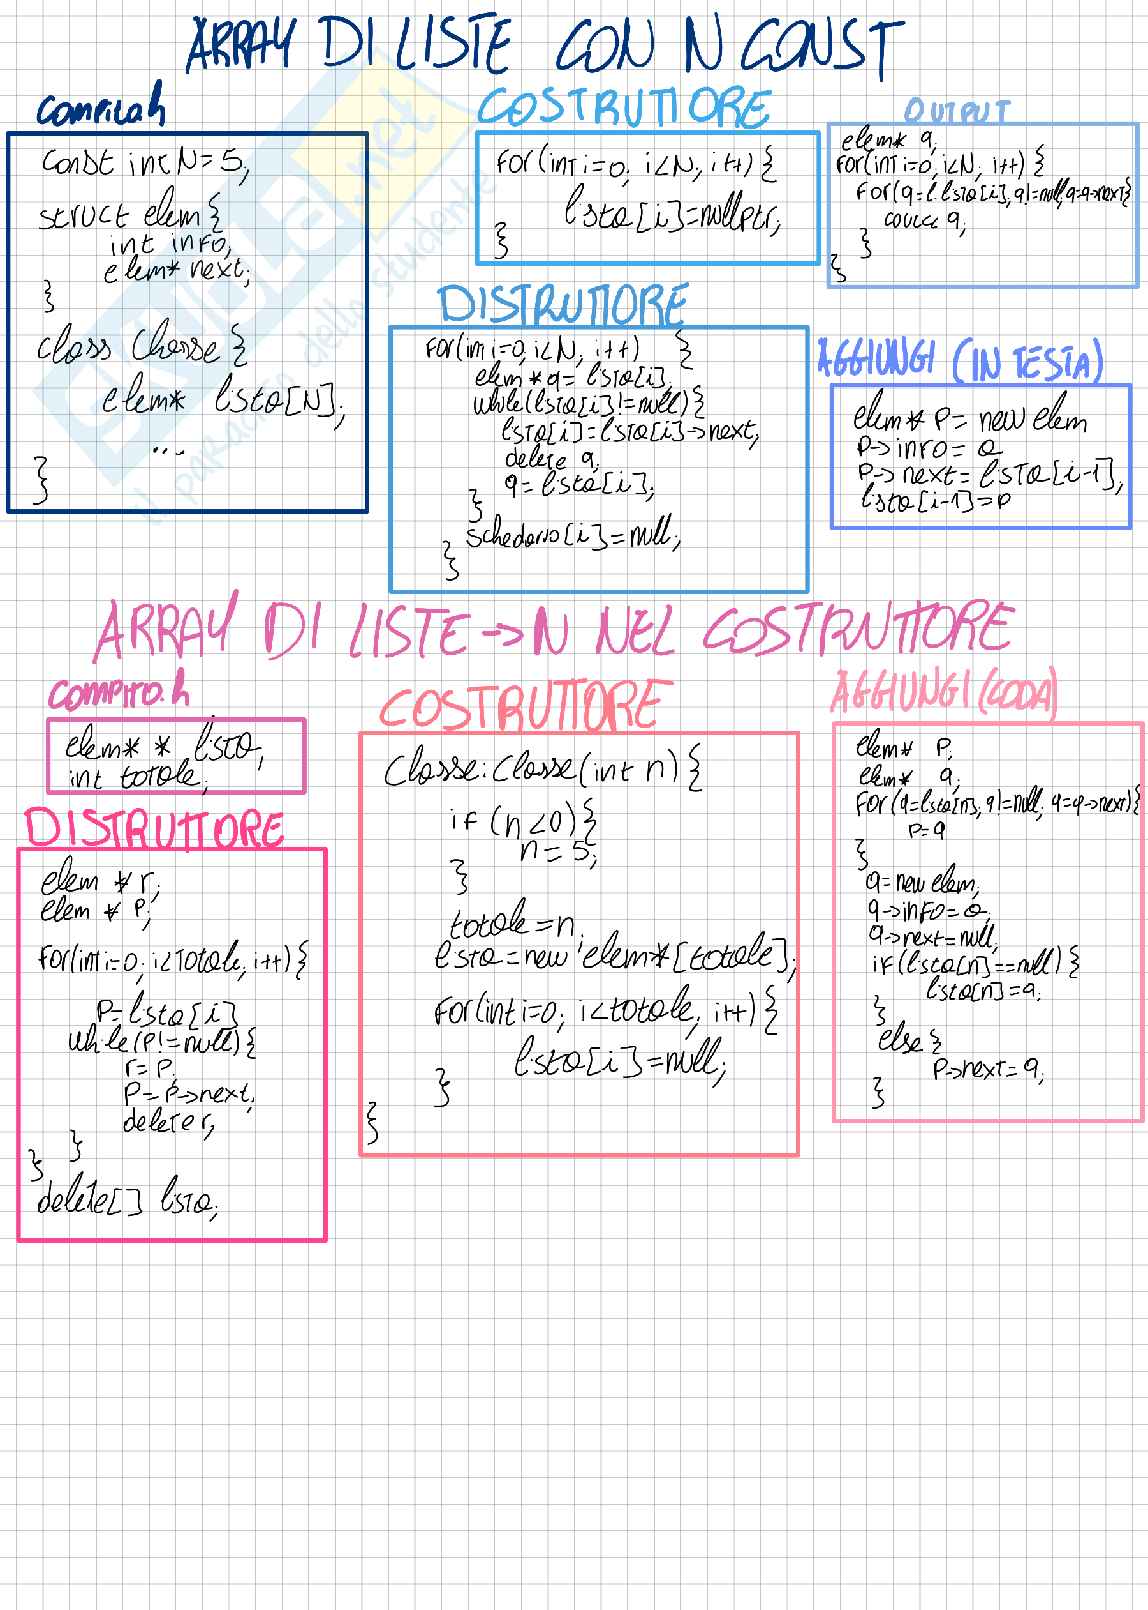 ARRAY DI LISTE CON N CONST
compito.h
const int N = 5;
struct elem {
int info;
elem* next;
}
class Classe {
elem* lista[N];
...
}
COSTRUTTORE
for(int i=0; i<N; i++) {
lista[i]=nullptr;
}
OUTPUT
elem* q;
for(int i=0; i<N; i++) {
for(q=l.lista[i]; q!=null; q=q->next) {
q;
}
}
DISTRUTTORE
for(int i=0; i<N; i++) {
elem *q= lista[i];
while(lista[i]!=null){
lista[i]=lista[i]->next;
delete q;
q=lista[i];
}
schedario[i]=null;
}
AGGIUNGI (IN TESTA)
elem* p= new elem
p->info= a
p->next= lista[i-1];
lista[i-1]=p
ARRAY DI LISTE -> N NEL COSTRUTTORE
compito.h
elem* * lista;
int totale;
DISTRUTTORE
elem * r;
elem * p;
for(int i=0; i<totale; i++) {
p=lista[i]
while(p!=null){
r=p;
p=p->next;
delete r;
}
}
delete[] lista;
COSTRUTTORE
Classe:Classe(int n) {
if (n<0) {
n = 5;
}
totale =n;
lista=new elem*[totale];
for(int i=0; i<totale; i++) {
lista[i]=null;
}
}
AGGIUNGI (CODA)
elem* p;
elem* q;
for(q=lista[n]; q!=null; q=q->next){
p=q
}
q=new elem;
q->info=a;
q->next=null;
if(lista[n]==null) {
lista[n]=q;
}
else {
p->next=q;
}
SKUOLA.net
il paradiso dello studente